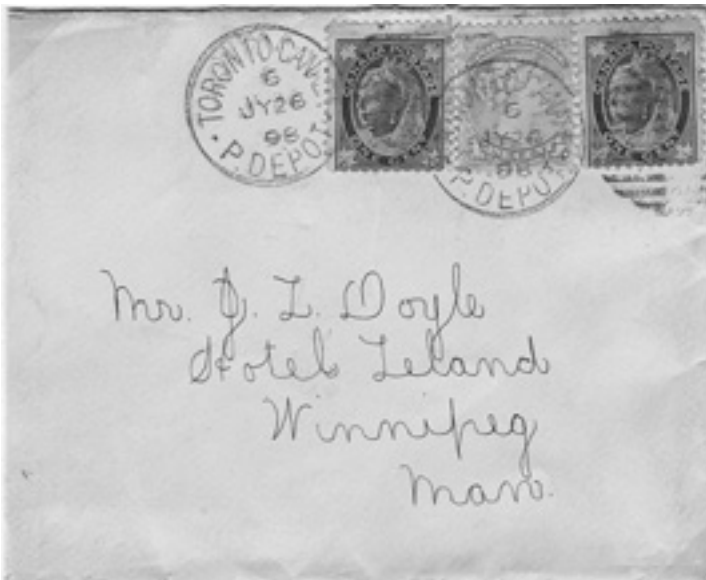 TORONTO·CANADA
6
JY26
98
P.DEPOT
6
JY26
98
P.DEPOT
Mr. J. L. Doyle
Hotel Leland
Winnipeg
Man.